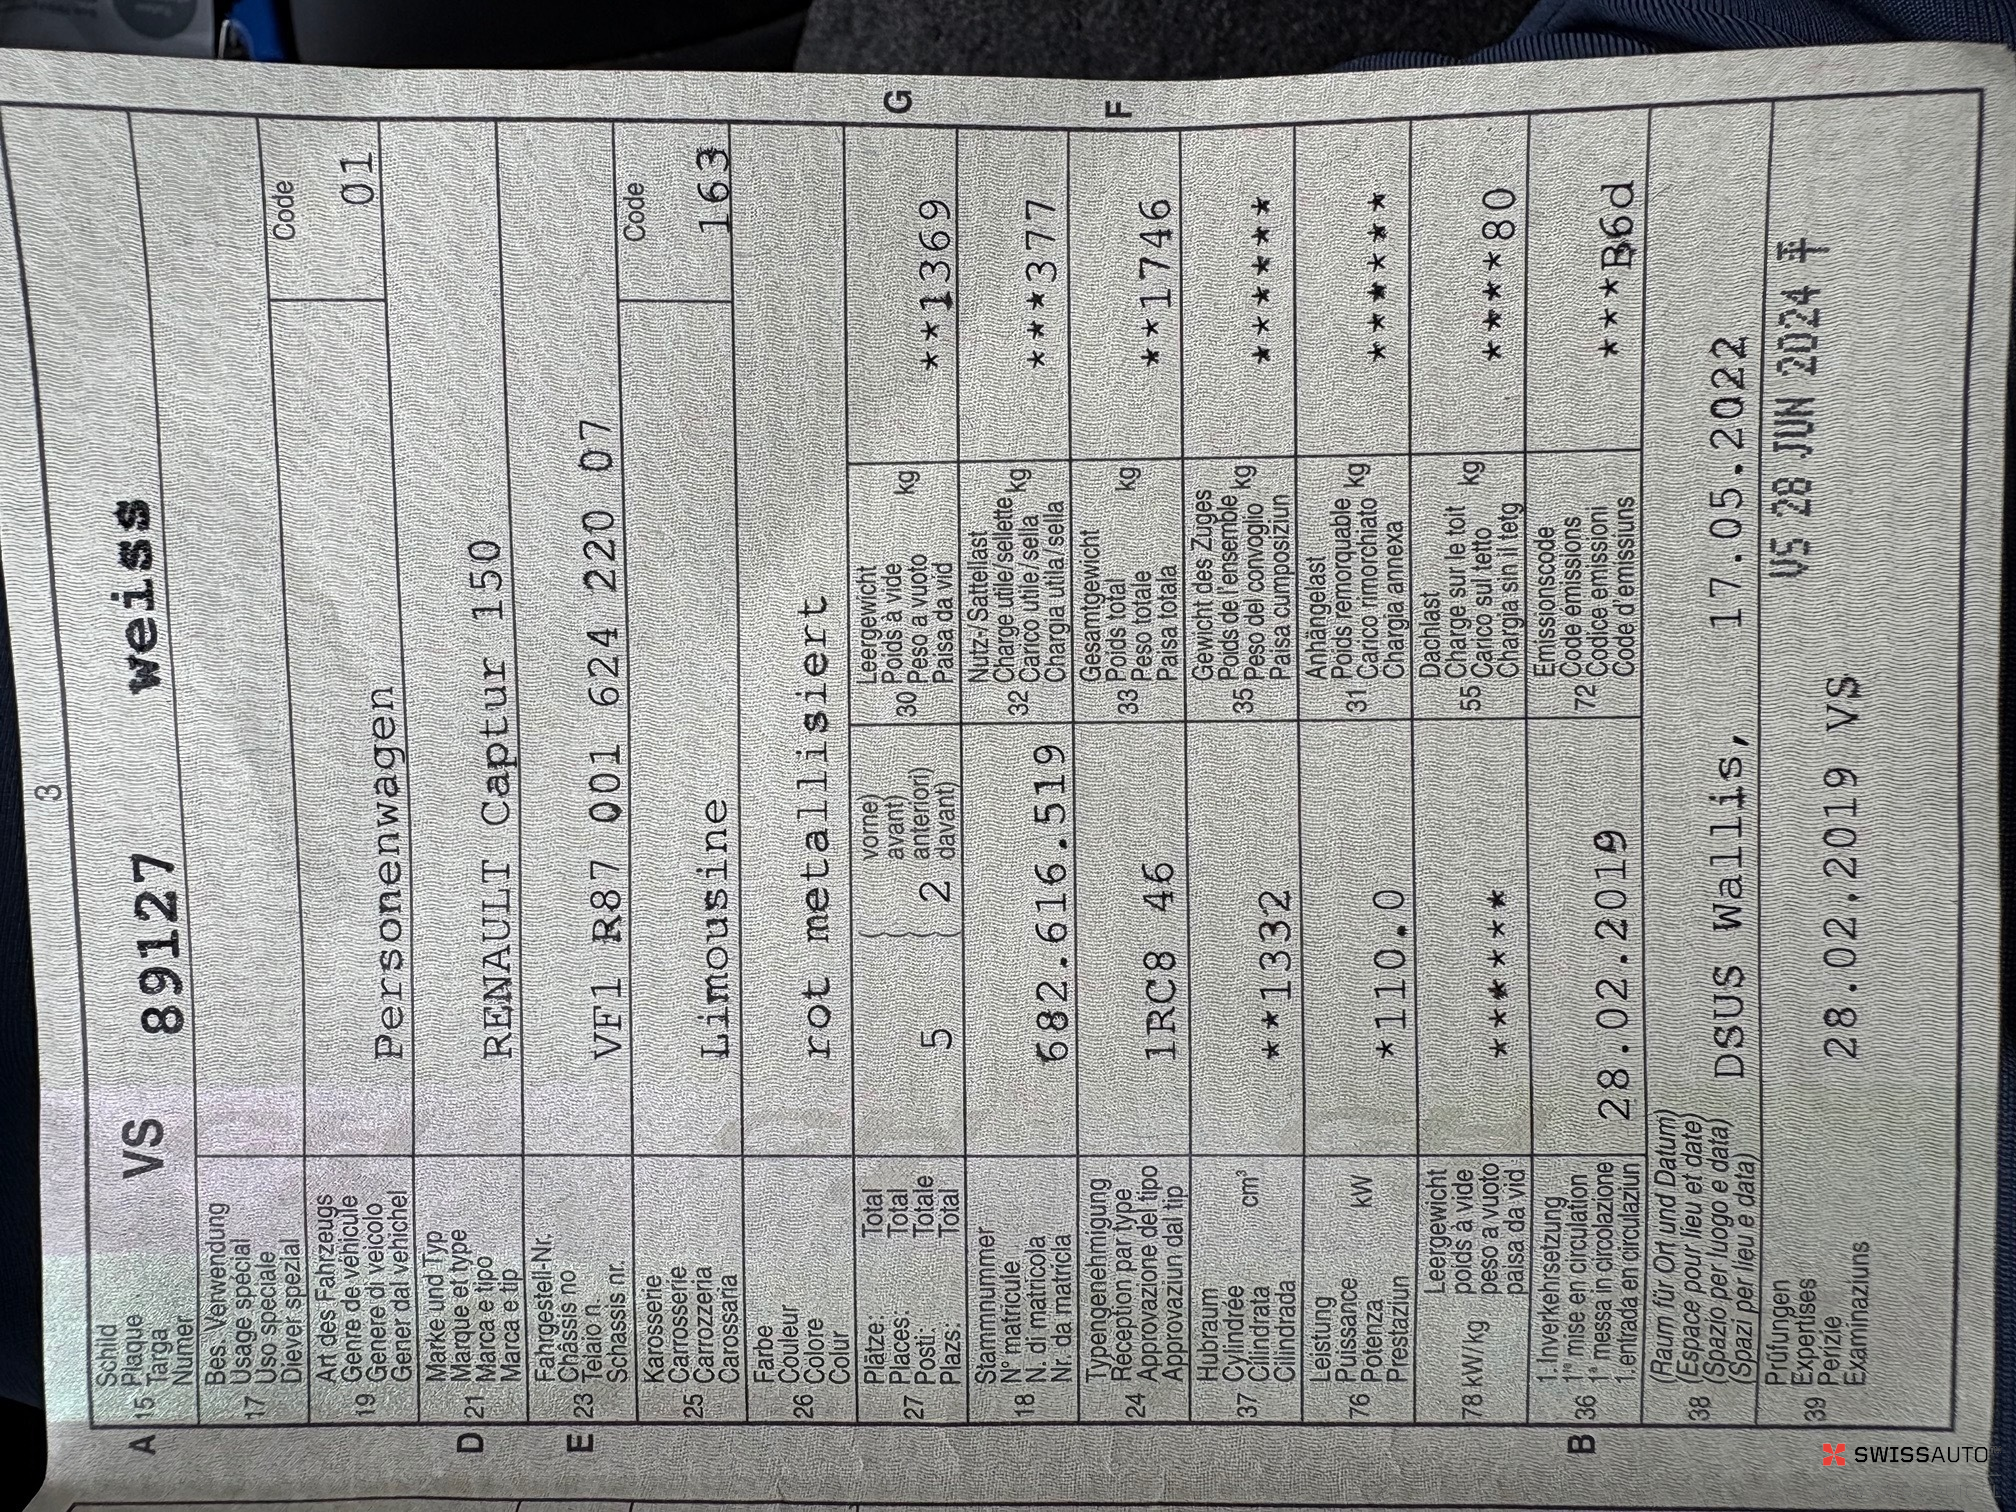 3
A
15
Schild
Plaque
Targa
Numer
VS 89127 weiss
17
Bes. Verwendung
Usage spécial
Uso speciale
Diever spezial
19
Art des Fahrzeugs
Genre de véhicule
Genere di veicolo
Gener dal vehichel
Personenwagen
Code
01
D
21
Marke und Typ
Marque et type
Marca e tipo
Marca e tip
RENAULT Captur 150
E
23
Fahrgestell-Nr.
Châssis no
Telaio n.
Schassis nr.
VF1 R87 001 624 220 07
25
Karosserie
Carrosserie
Carrozzeria
Carossaria
Limousine
Code
163
26
Farbe
Couleur
Colore
Colur
rot metallisiert
27
Plätze: Total
Places: Total
Posti: Totale
Plazs: Total
5
vorne)
avant)
anteriori)
davant)
2
30
Leergewicht
Poids à vide
Peso a vuoto kg
Paisa da vid
**1369
G
18
Stammnummer
N° matricule
N. di matricola
Nr. da matricla
682.616.519
32
Nutz-/Sattellast
Charge utile/sellette
Carico utile/sella kg
Chargia utila/sella
***377
24
Typengenehmigung
Réception par type
Approvazione del tipo
Approvaziun dal tip
1RC8 46
33
Gesamtgewicht
Poids total
Peso totale kg
Paisa totala
**1746
F
37
Hubraum
Cylindrée
Cilindrata cm³
Cilindrada
**1332
35
Gewicht des Zuges
Poids de l'ensemble
Peso del convoglio kg
Paisa cumposiziun
*******
76
Leistung
Puissance
Potenza kW
Prestaziun
*110.0
31
Anhängelast
Poids remorquable
Carico rimorchiato kg
Chargia annexa
*******
78 kW/kg
Leergewicht
poids à vide
peso a vuoto
paisa da vid
*******
55
Dachlast
Charge sur le toît
Carico sul tetto kg
Chargia sin il tetg
*****80
B
36
1. Inverkehrsetzung
1re mise en circulation
1a messa in circolazione
1. entrada en circulaziun
28.02.2019
72
Emissionscode
Code émissions
Codice emissioni
Code d'emissiuns
***B6d
38
(Raum für Ort und Datum)
(Espace pour lieu et date)
(Spazio per luogo e data)
(Spazi per lieu e data)
DSUS Wallis, 17.05.2022
39
Prüfungen
Expertises
Perizie
Examinaziuns
28.02.2019 VS
VS 28 JUN 2024
SWISSAUTO